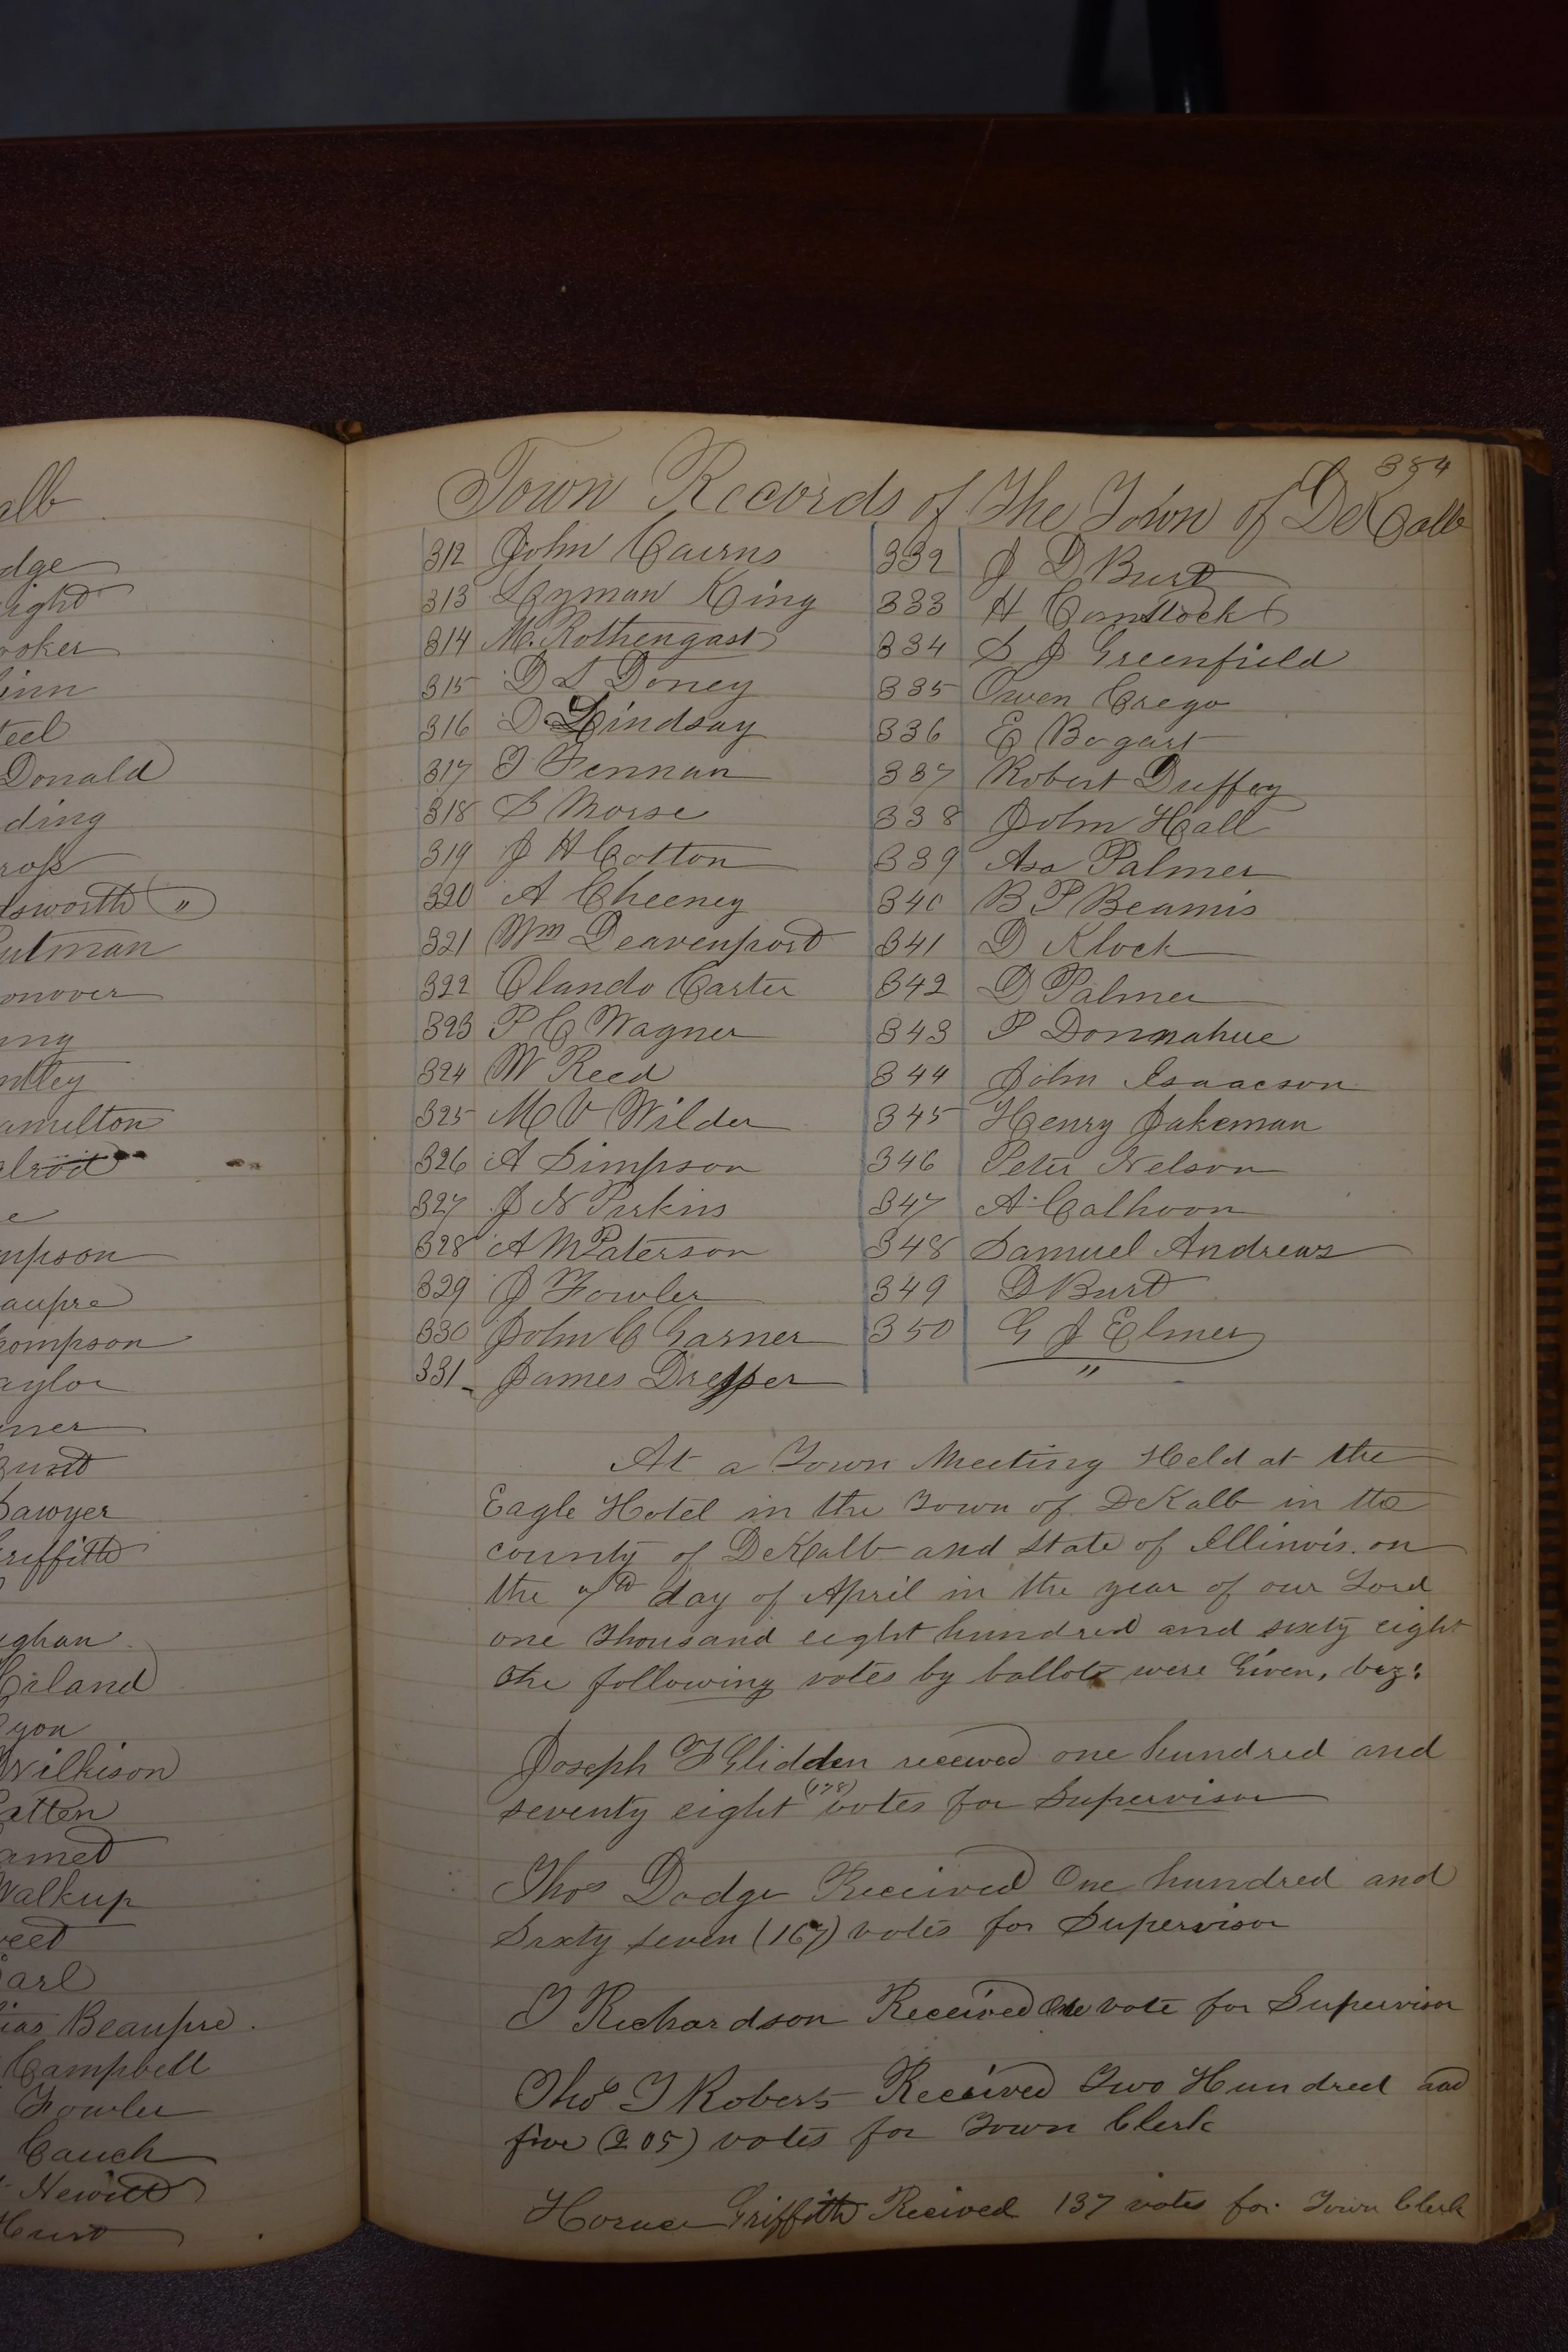 alb
dge
ight
ooker
inn
teel
Donald
ding
ross
dsworth "
utman
onover
ung
ntley
amilton
elrod
e
mpson
aupre
hompson
aylor
Sawyer
riffith
ughan
Hiland
yon
Wilkison
atten
amed
Walkup
eet
arl
ias Beaupre.
Campbell
Fowler
Cauch
Hewitt
Hurd
354
Town Records of The Town of DeKalb
312 John Cairns
313 Lyman King
314 M. Rothengast
315 D L Doney
316 D Lindsay
317 T Fennan
318 S Morse
319 J H Cotton
320 A Cheeney
321 Wm Deavenport
322 Olando Carter
323 P C Wagner
324 W Reed
325 M V Wilder
326 A Simpson
327 J N Perkins
328 A M Paterson
329 J Fowler
330 John C Garner
331 James Dresser
332 J D Burt
333 H Comstock
334 S J Greenfield
335 Owen Crego
336 E Bogart
337 Robert Duffey
338 John Hall
339 Asa Palmer
340 B P Beamis
341 D Klock
342 D Palmer
343 P Donnahue
344 John Isaacson
345 Henry Jakeman
346 Peter Nelson
347 A. Calhoon
348 Samuel Andrews
349 D Burt
350 G J Elmer
"
At a Town Meeting Held at the
Eagle Hotel in the Town of DeKalb in the
county of DeKalb and State of Illinois. on
the 7th day of April in the year of our Lord
one thousand eight hundred and sixty eight
the following votes by ballots were Given, viz:
Joseph F Glidden received one hundred and
seventy eight (178) votes for Supervisor
Thos Dodge Received One hundred and
Sixty seven (167) votes for Supervisor
I Richardson Received One vote for Supervisor
Thos T Roberts Received Two Hundred and
five (205) votes for Town Clerk
Horace Griffith Recived 137 votes for Town Clerk